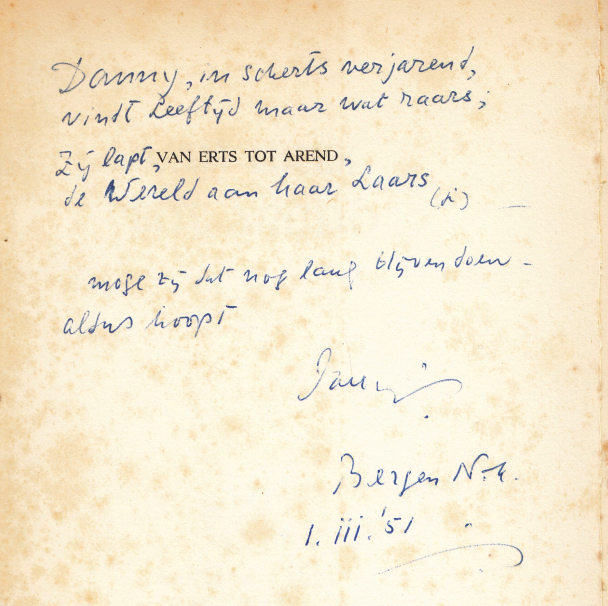 Danny, in scherts verjarend,
vindt Leeftijd maar wat raars;
Zij lapt, VAN ERTS TOT AREND,
de Wereld aan haar Laars
moge zij dat nog lang blijven doen –
aldus hoopt
Bergen N.H.
1. III. '51